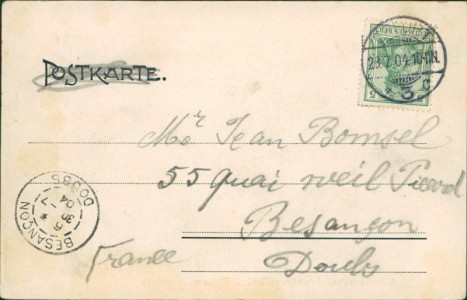 POSTKARTE.
DEUTSCHES REICH
5
29.7.04.10-11N.
* 3 c
Mr Jean Bomsel
55 quai veil Picard
Besançon
Doubs
France
BESANÇON
DOUBS
30 -7
04